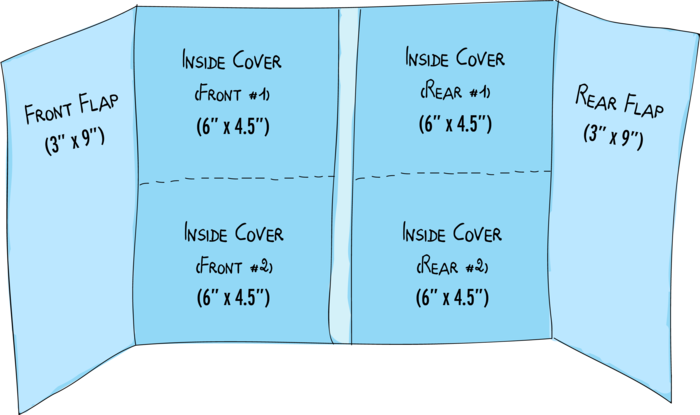 Front Flap
(3" x 9")
Inside Cover
(Front #1)
(6" x 4.5")
Inside Cover
(Rear #1)
(6" x 4.5")
Rear Flap
(3" x 9")
Inside Cover
(Front #2)
(6" x 4.5")
Inside Cover
(Rear #2)
(6" x 4.5")